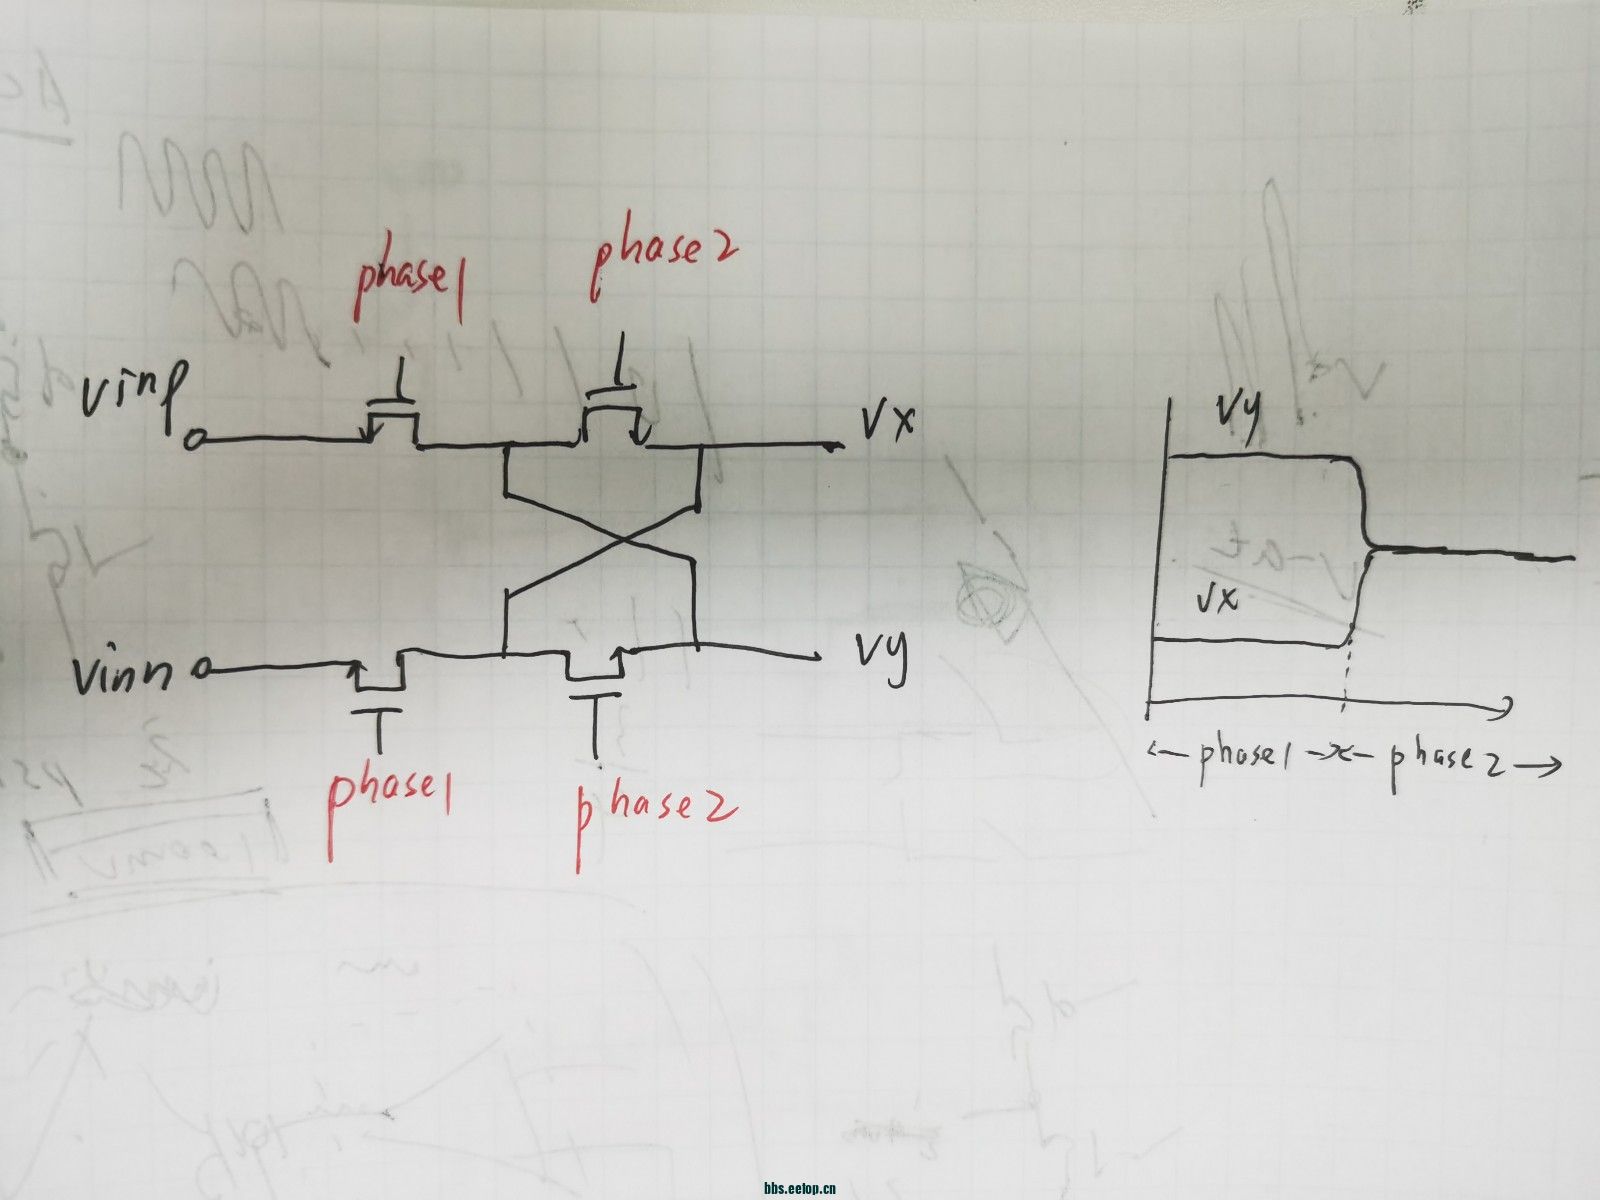 phase1
phase2
vinp
vx
vinn
vy
phase1
phase2
vy
vx
phase1
phase2
bbs.eetop.cn